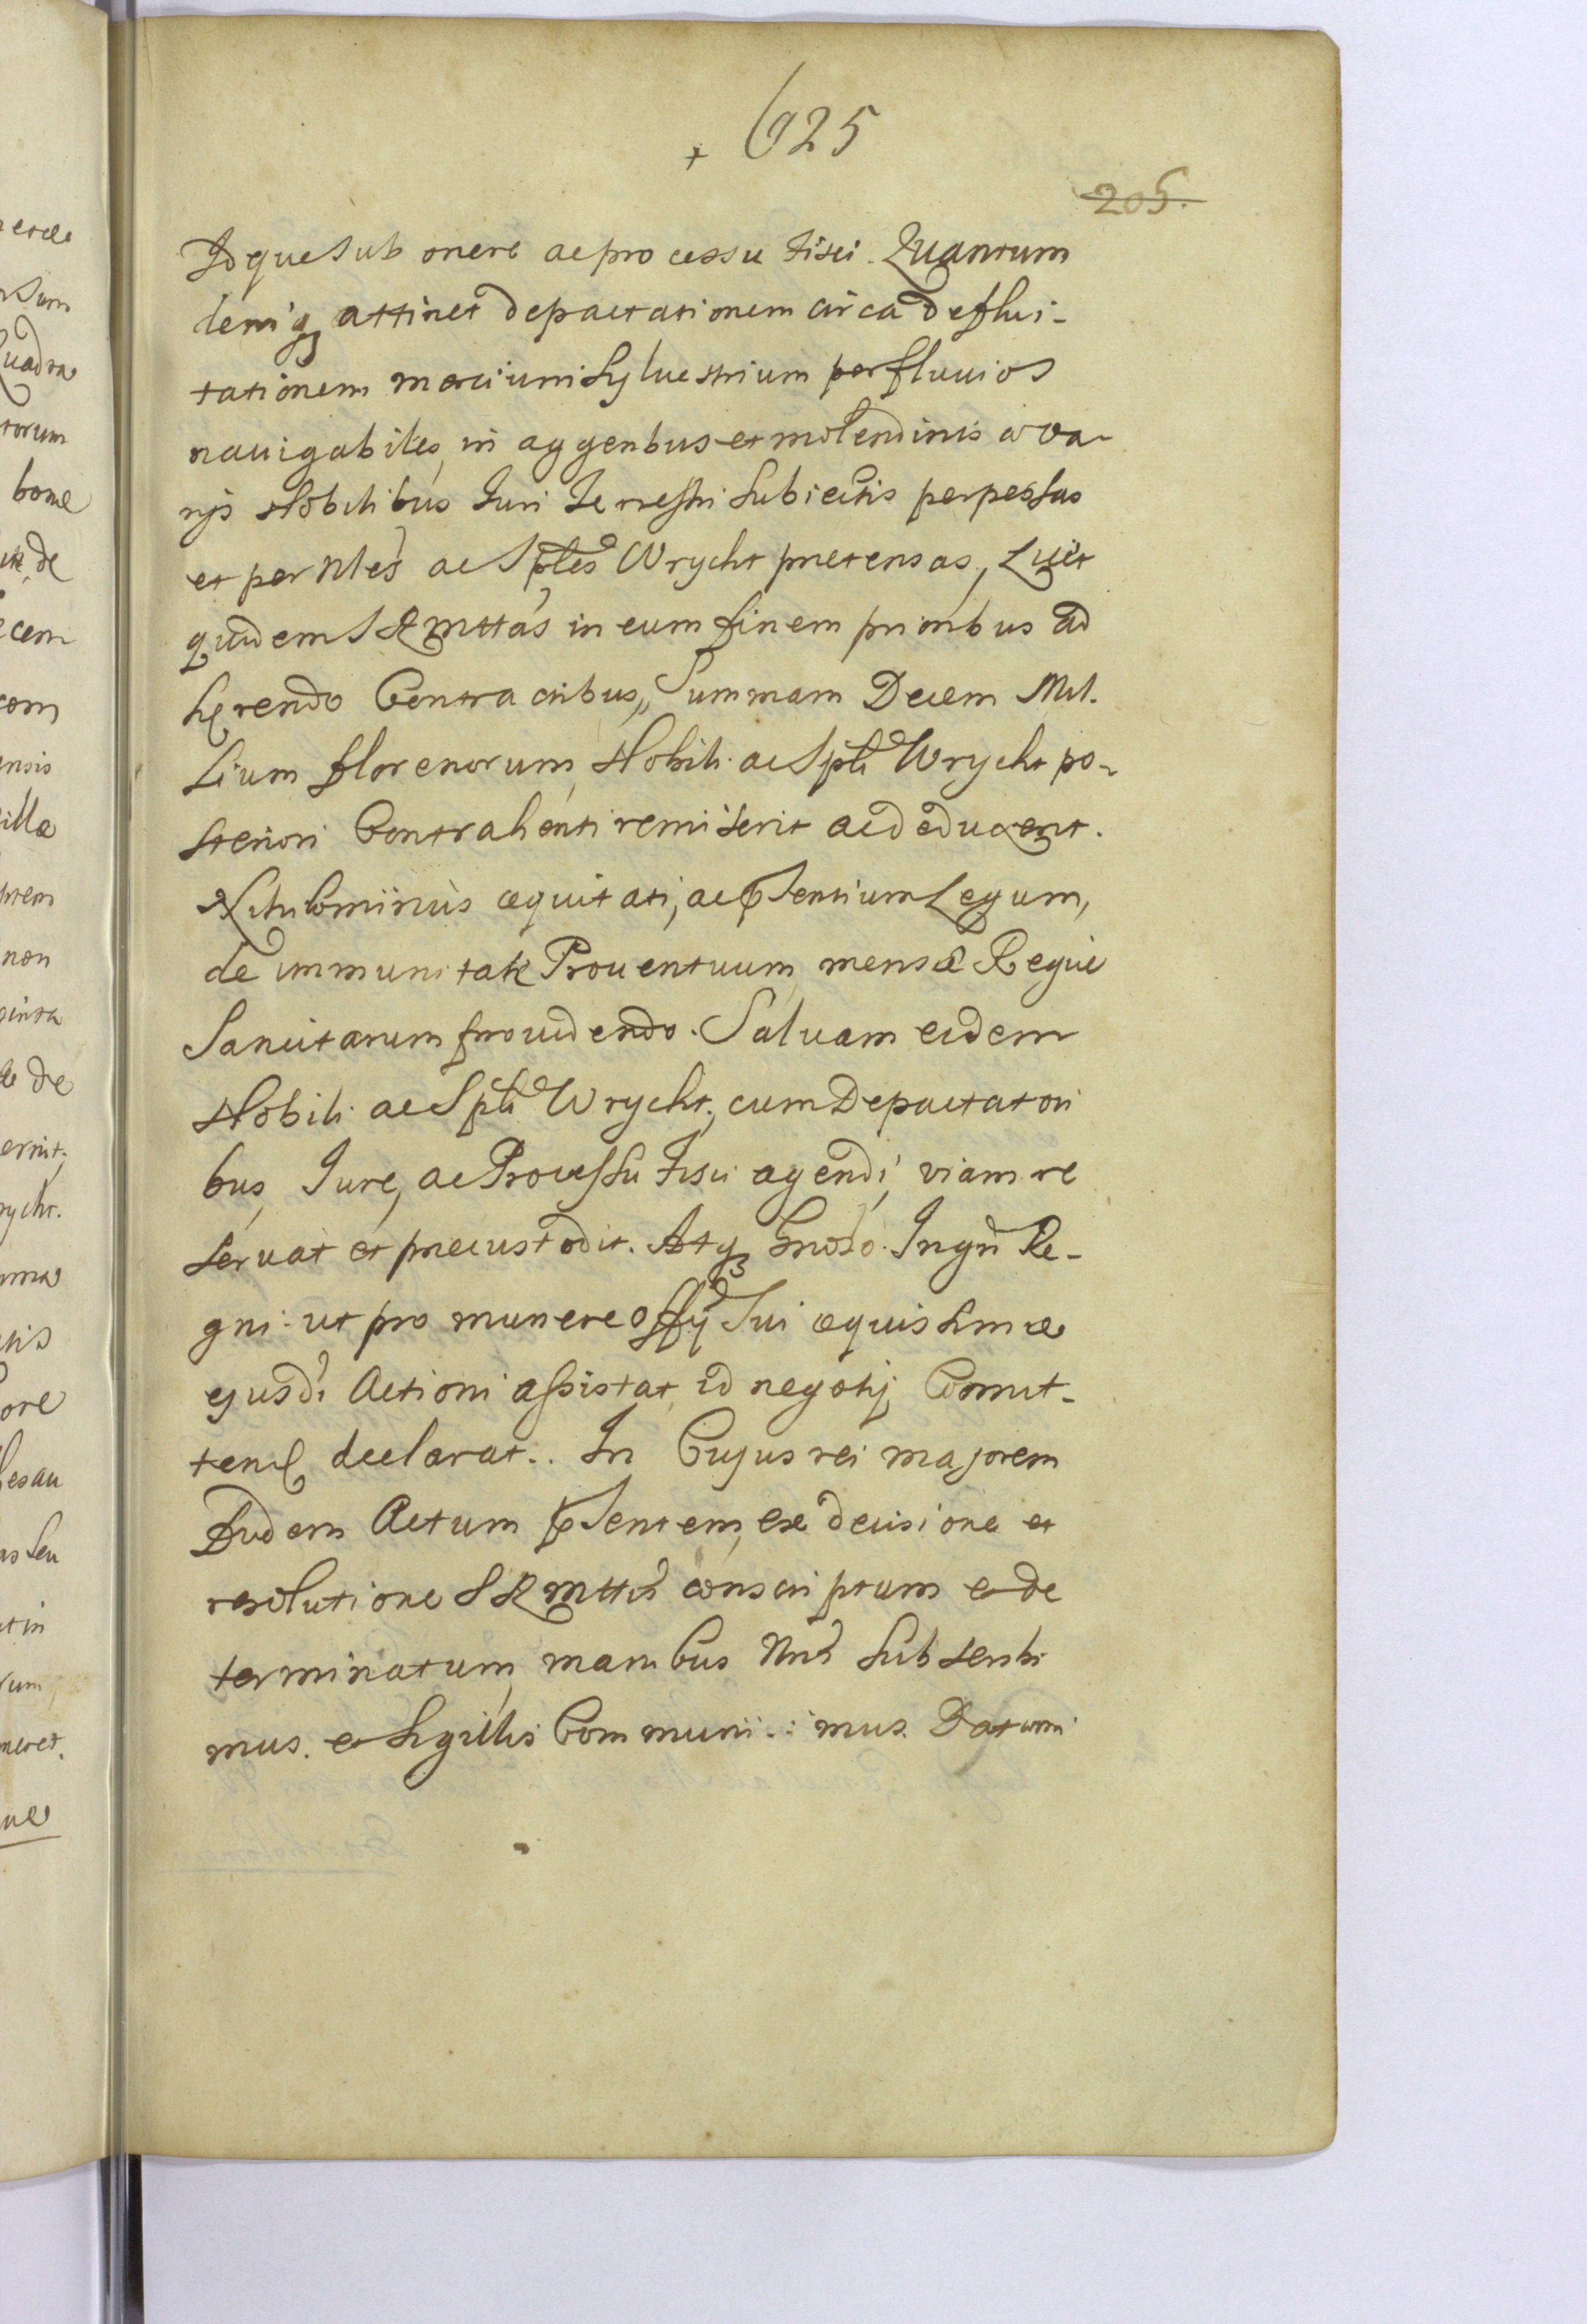 + 625
205.
Idque sub onere ac processu fisci. Quantum
deniq; attinet depactationem circa deflui-
tationem merciumsyluestrium per fluuios
nauigabiles, in aggeribus et molendinis a va-
rys Nobilibus Iuri Terrestri subiectis perpessas
et per Nles ac Sptles Wrycht pretensas, Licet
quidem SRMttas in eum finem prioribus ad
herendo Contractibus, Summam Decem Mil-
lium florenorum, Nobili ac Sptli Wrycht po-
steriori Contrahenti remiserit ac deduxerit.
Nihilominus æquitati, ac pñsentium Legum,
de immunitate Prouentuum mensæ Regiæ
Sancitarum prouidendo. Saluam eidem
Nobili ac Sptli Wrycht, cum Depactatori
bus, Iure, ac Processu fisci agendi, viam re
seruat et precustodit. Atq; Gnoso. Ingri Re-
gni ut pro munere Offÿ sui æquissimæ
ejusdi Actioni assistat, id negotij Comit-
tend declarat.. In Cujus rei majorem
fidem Actum pñsentem, ex decisione et
resolutione SRMttis conscriptum et de
terminatum, manibus Nris subscribi
mus. et sigillis Communi..imus. Datum